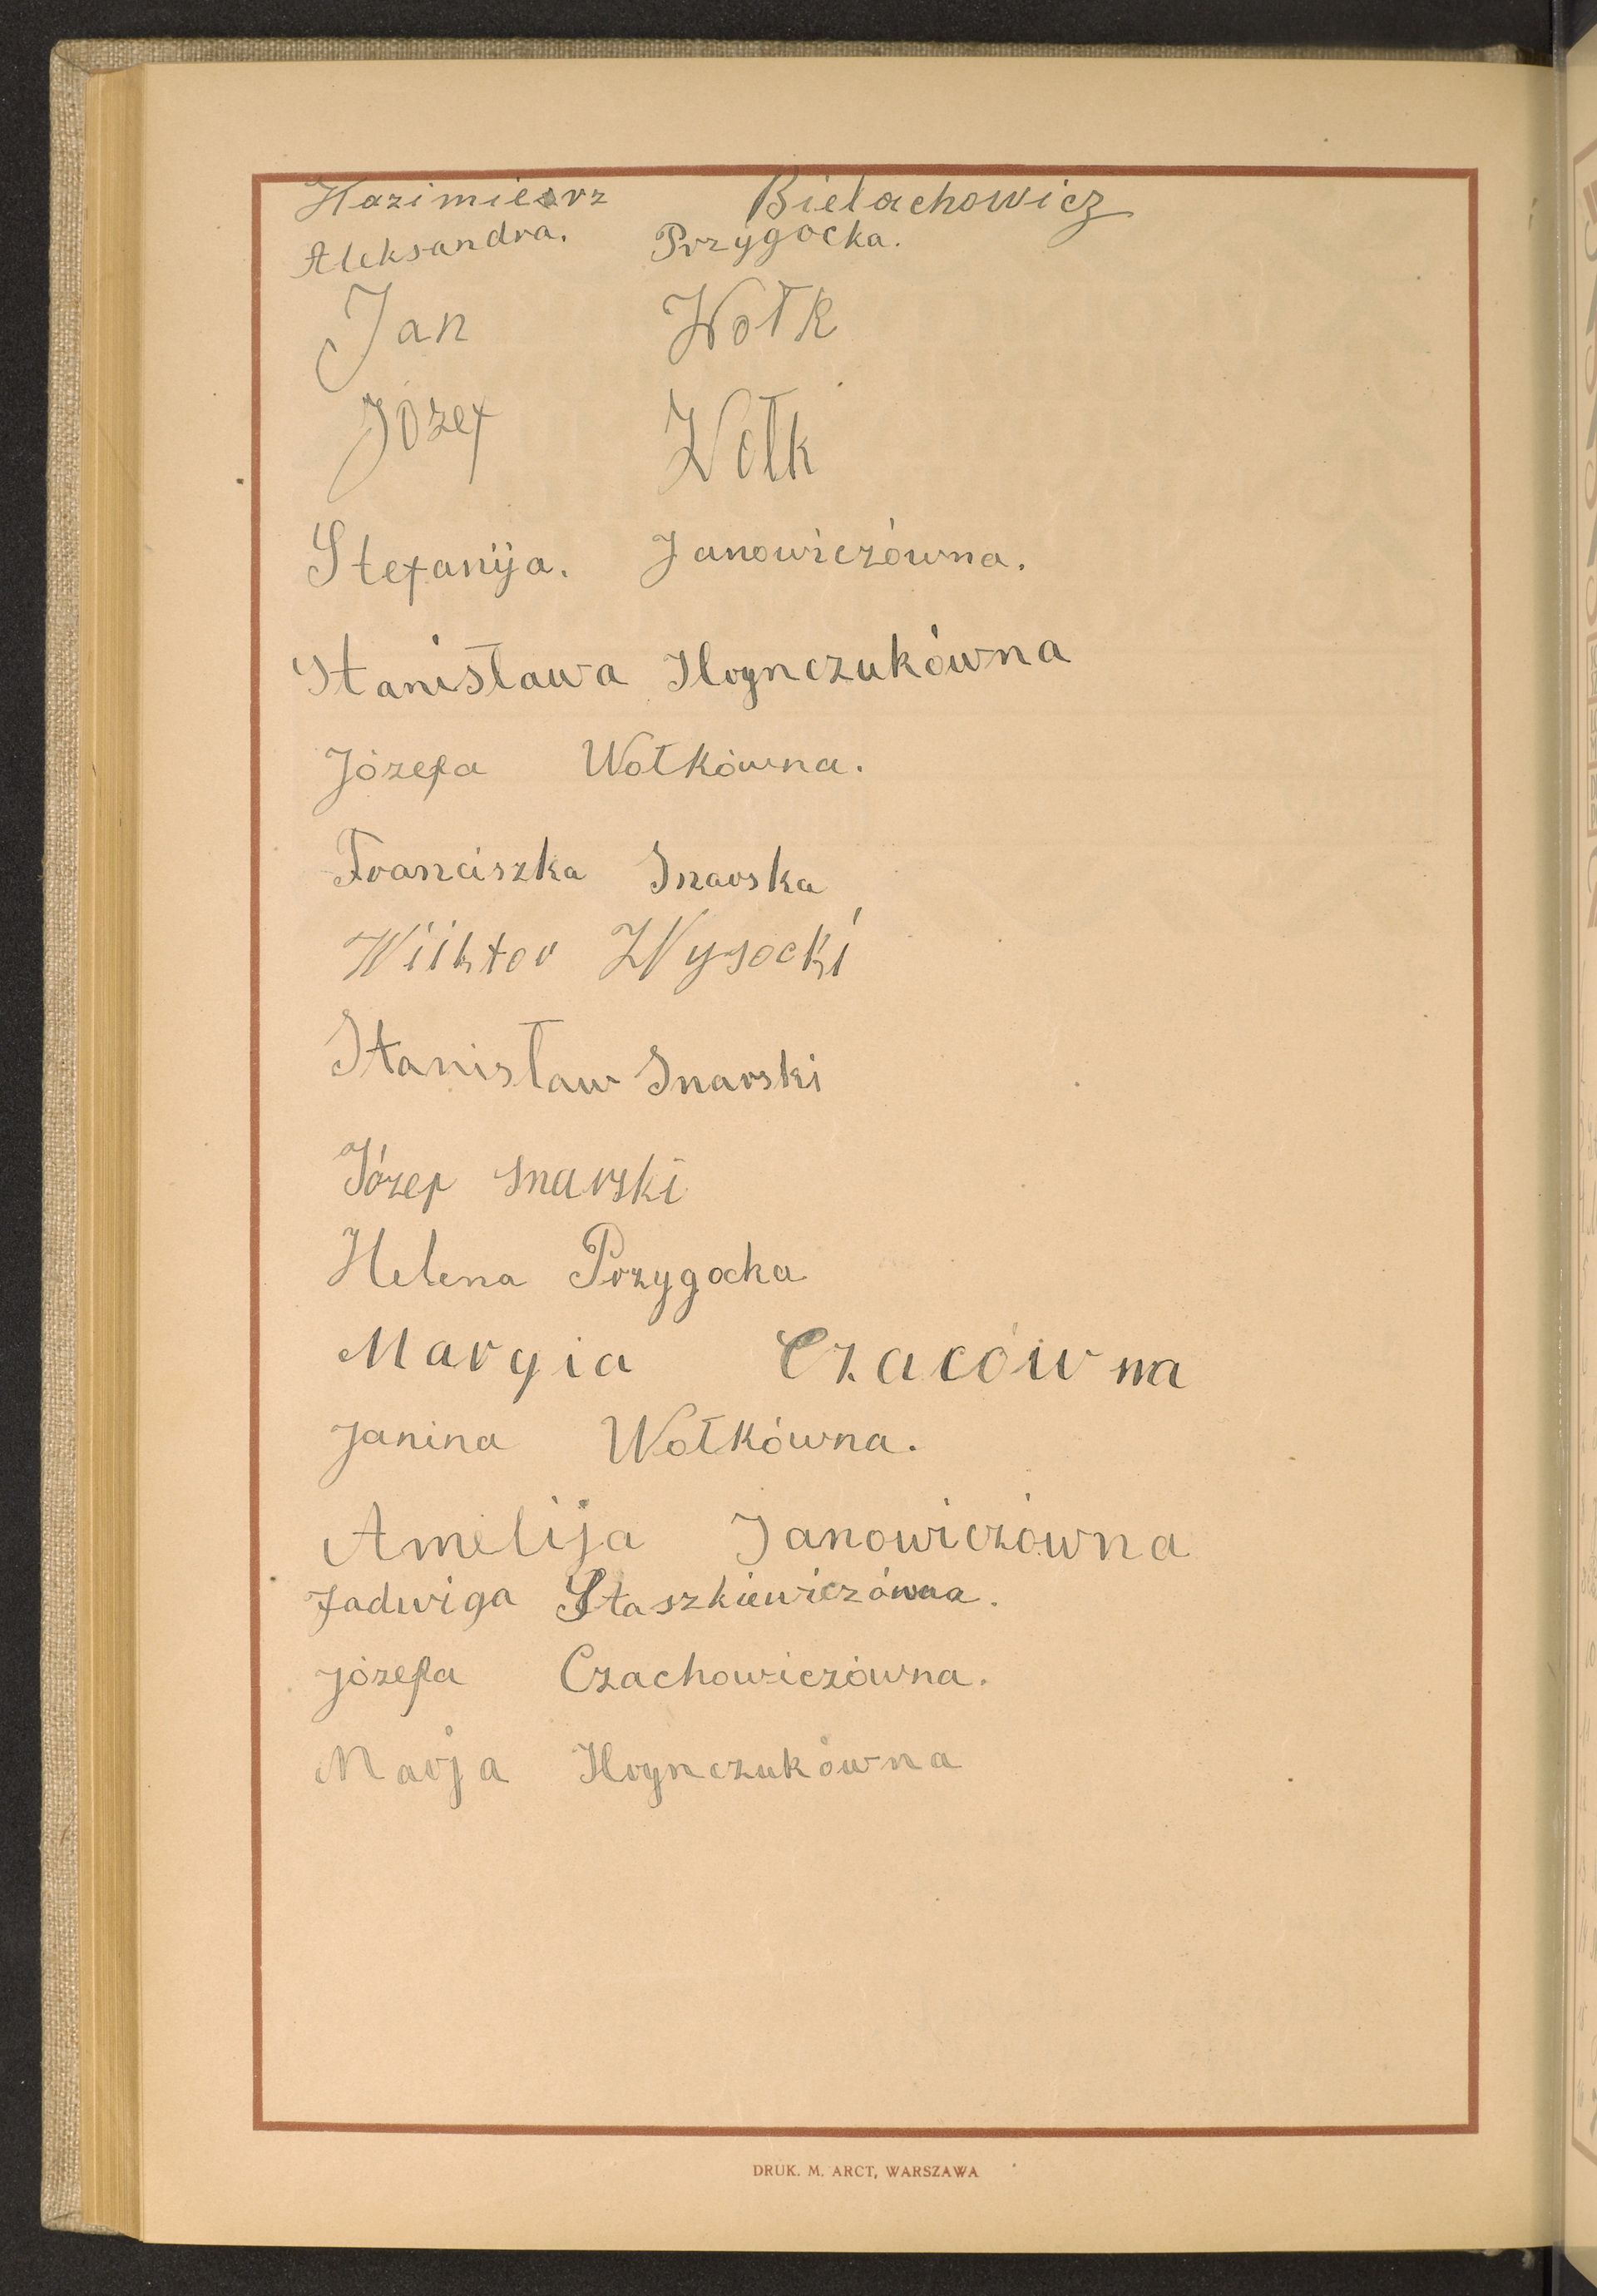 Kazimierz Bielachowicz
Aleksandra. Przygocka.
Jan Wołk
Józef Wołk
Stefanija. Janowiczówna.
Stanisława Hrynczukówna
Józefa Wołkówna.
Franciszka Snarska
Wiiktor Wysocki
Stanisław Snarski
Józef Snarski
Helena Przygocka
Marygia Czacówna
Janina Wołkówna.
Amelija Janowiczówna
Jadwiga Staszkiewiczówna.
Józefa Czachowiczówna.
Marja Hrynczukówna
DRUK. M. ARCT, WARSZAWA